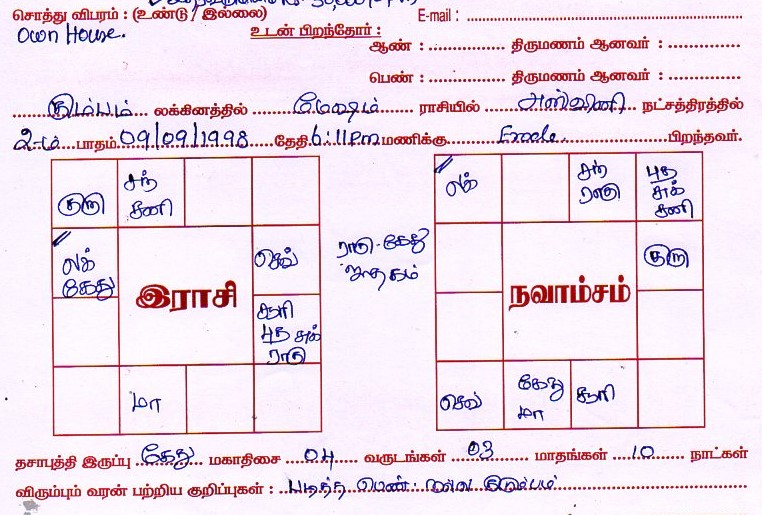 சொத்து விபரம் : (உண்டு / இல்லை)
E-mail :
Own House.
உடன் பிறந்தோர் :
ஆண் : திருமணம் ஆனவர் :
பெண் : திருமணம் ஆனவர் :
கும்பம் லக்கினத்தில் மேஷம் ராசியில் அஸ்வினி நட்சத்திரத்தில்
2-ம் பாதம் 09/09/1998 தேதி 6:11pm மணிக்கு Erode. பிறந்தவர்.
குரு
சந்
சனி
லக்
கேது
செவ்
சூரி
புத சுக்
ராகு
மா
இராசி
ராகு-கேது
ஜாதகம்
லக்
சந்
ராகு
புத
சுக்
சனி
குரு
நவாம்சம்
செவ்
கேது
மா
சூரி
தசாபுத்தி இருப்பு கேது மகாதிசை 04 வருடங்கள் 03 மாதங்கள் 10 நாட்கள்
விரும்பும் வரன் பற்றிய குறிப்புகள் : படித்த பெண். நல்ல குடும்பம்